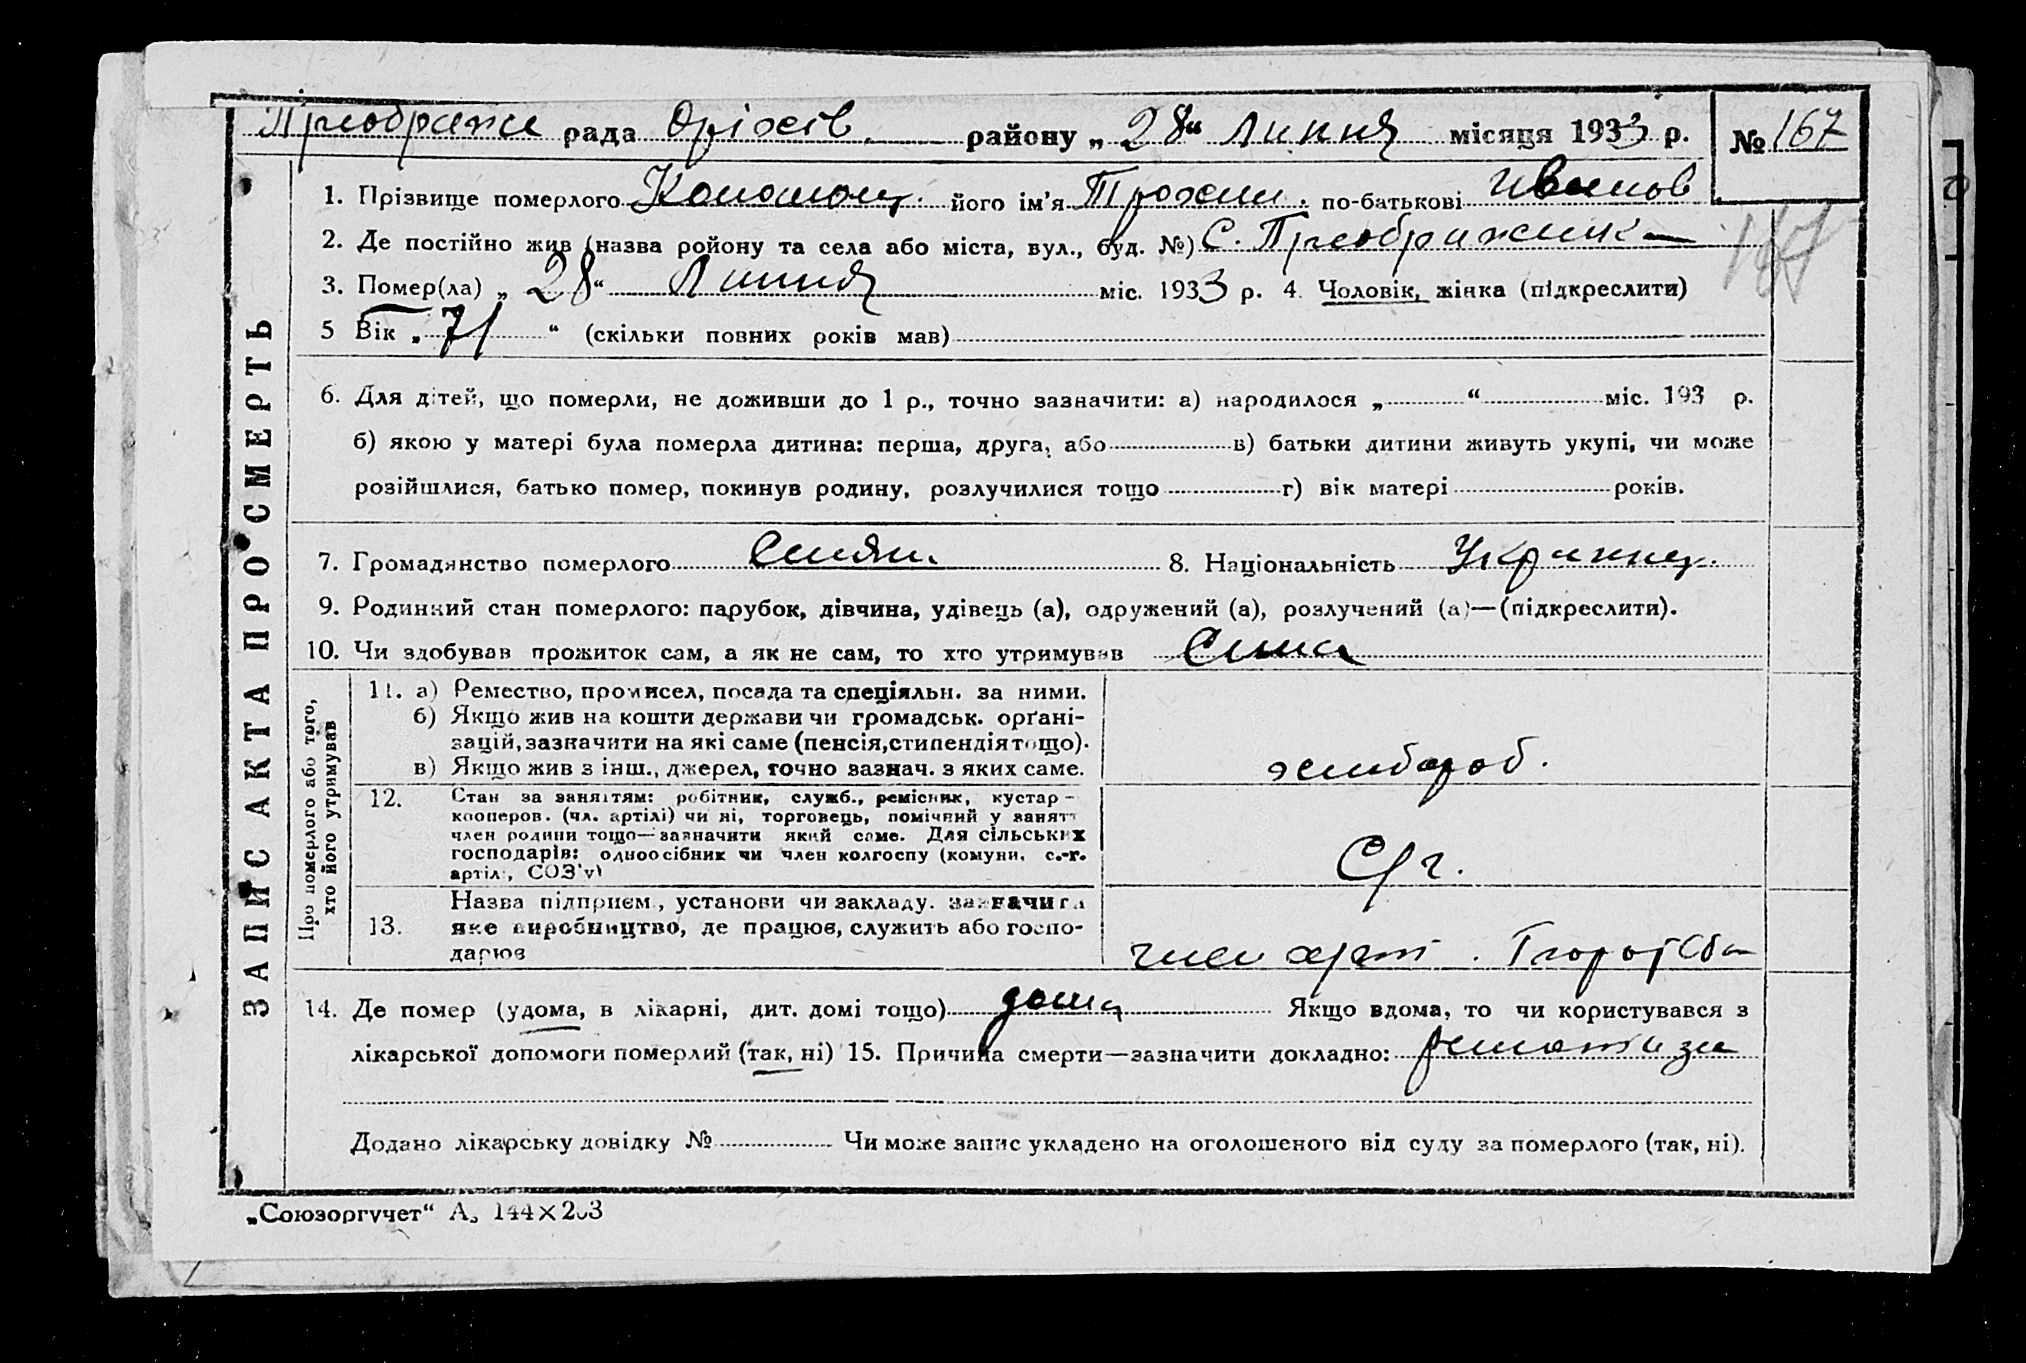 Преображе рада Оріхів. району „28“ липня місяця 1933 р. № 167
1. Прізвище померлого його ім’я Трохим. по-батькові Иванов
2. Де постійно жив (назва ройону та села або міста, вул., буд. №) С. Преображенка
3. Помер(ла) „28“ Липня міс. 1933 р. 4. Чоловік, жінка (підкреслити)
5 Вік „71“ (скільки повних років мав)
6. Для дітей, що померли, не доживши до 1 р., точно зазначити: а) народилося „ “ міс. 193 р.
б) якою у матері була померла дитина: перша, друга, або в) батьки дитини живуть укупі, чи може
розійшлися, батько помер, покинув родину, розлучилися тощо г) вік матері років.
7. Громадянство померлого 8. Національність Украинец.
9. Родинний стан померлого: парубок, дівчина, удівець (а), одружений (а), розлучений (а)—(підкреслити).
10. Чи здобував прожиток сам, а як не сам, то хто утримував
ЗАПИС АКТА ПРО СМЕРТЬ
Про померлого або того,
хто його утримував
11. а) Ремество, промисел, посада та спеціяльн. за ними.
б) Якщо жив на кошти держави чи громадськ. орґані-
зацій, зазначити на які саме (пенсія, стипендія тощо).
в) Якщо жив з інш., джерел, точно зазнач. з яких саме.
хлібороб.
12. Стан за заняттям: робітник, служб., ремісник, кустар-
кооперов. (чл. артілі) чи ні, торговець, помічний у занятт
член родини тощо—зазначити який саме. Для сільських
господарів: одноосібник чи член колгоспу (комуни, с.-г.
артіл., СОЗ’у)
С/г.
13. Назва підприєм., установи чи закладу. зазначити
яке виробництво, де працюв, служить або госпо-
дарюв
член арт.
14. Де помер (удома, в лікарні, дит. домі тощо) дома Якщо вдома, то чи користувався з
лікарської допомоги померлий (так, ні) 15. Причина смерти—зазначити докладно: ревматизм
Додано лікарську довідку № Чи може запис укладено на оголошеного від суду за померлого (так, ні).
„Союзоргучет“ А₅ 144×203